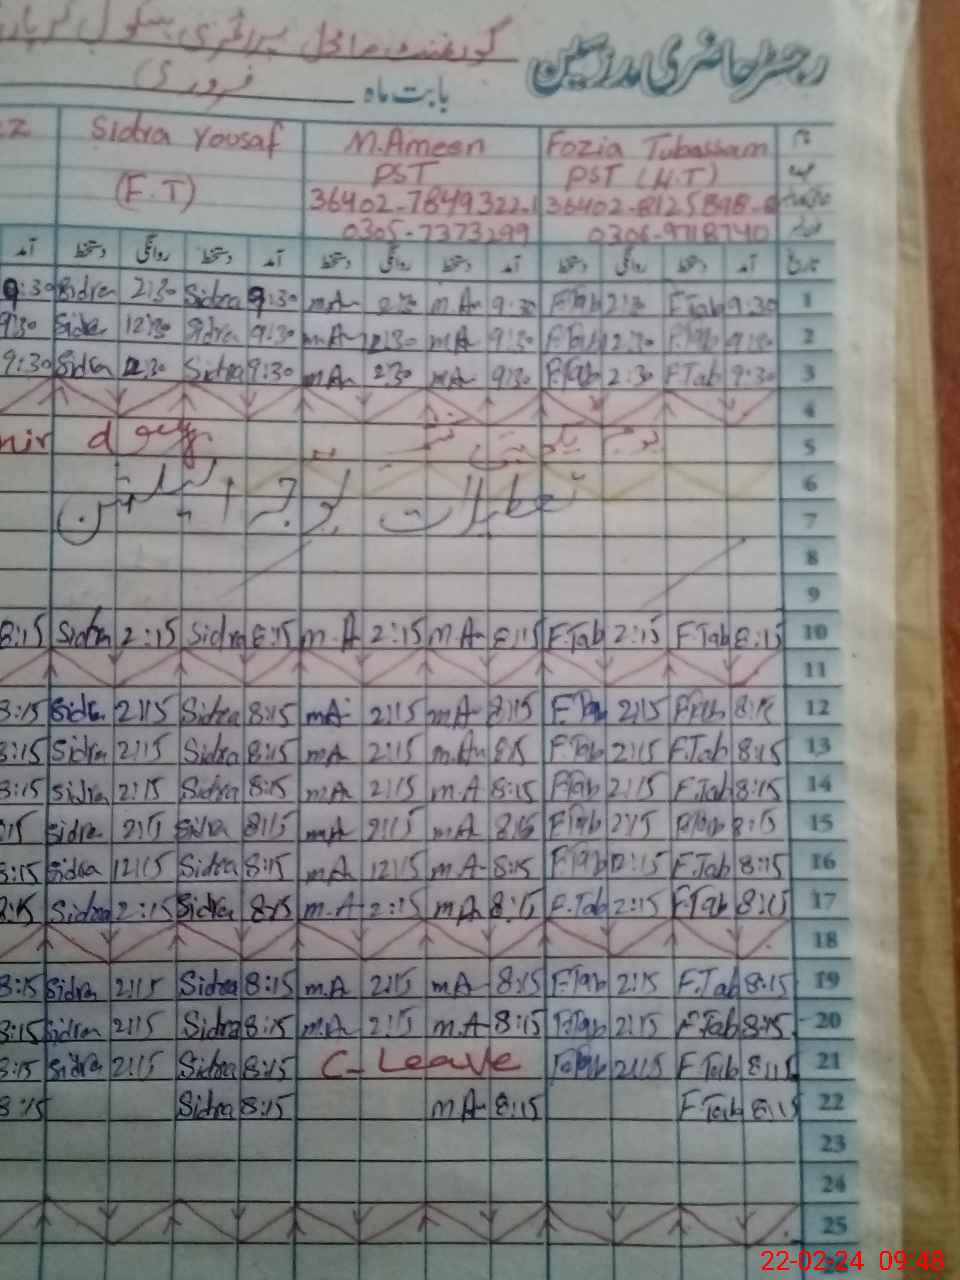 رجسٹر حاضری مدرسین
گورنمنٹ ماڈل پرائمری سکول
بابت ماہ فروری
نام Fozia Tubassam M.Ameen Sidra Yousaf
PST (H.T) PST (F.T)
36402-8125898-8 36402-7849322-1
0306-9718740 0305-7373299
تاریخ آمد دستخط روانگی دستخط آمد دستخط روانگی دستخط آمد دستخط روانگی دستخط آمد
1 9:30 F.Tab 2:30 F.Tab 9:30 m.A 2:30 m.A 9:30 Sidra 2:30 Sidra 9:30
2 9:30 F.Tab 12:30 F.Tab 9:30 m.A 12:30 m.A 9:30 Sidra 12:30 Sidra 9:30
3 9:30 F.Tab 2:30 F.Tab 9:30 m.A 2:30 m.A 9:30 Sidra 2:30 Sidra 9:30
4
5
6
7 تعطیلات بوجہ الیکشن
8
9
10 8:15 F.Tab 2:15 F.Tab 8:15 m.A 2:15 m.A 8:15 Sidra 2:15 Sidra 8:15
11
12 8:15 F.Tab 2:15 F.Tab 8:15 m.A 2:15 m.A 8:15 Sidra 2:15 Sidra 8:15
13 8:15 F.Tab 2:15 F.Tab 8:15 m.A 2:15 m.A 8:15 Sidra 2:15 Sidra 8:15
14 8:15 F.Tab 2:15 F.Tab 8:15 m.A 2:15 m.A 8:15 Sidra 2:15 Sidra 8:15
15 8:15 F.Tab 2:15 F.Tab 8:15 m.A 2:15 m.A 8:15 Sidra 2:15 Sidra :15
16 8:15 F.Tab 12:15 F.Tab 8:15 m.A 12:15 m.A 8:15 Sidra 12:15 Sidra 8:15
17 8:15 F.Tab 2:15 F.Tab 8:15 m.A 2:15 m.A 8:15 Sidra 2:15 Sidra 8:15
18
19 8:15 F.Tab 2:15 F.Tab 8:15 m.A 2:15 m.A 8:15 Sidra 2:15 Sidra 8:15
20 8:15 F.Tab 2:15 F.Tab 8:15 m.A 2:15 m.A 8:15 Sidra 2:15 Sidra 8:15
21 8:15 F.Tab 2:15 F.Tab C-Leave 8:15 Sidra 2:15 Sidra 8:15
22 8:15 F.Tab 8:15 m.A 8:15 Sidra 8:15
23
24
25
22-02-24 09:48